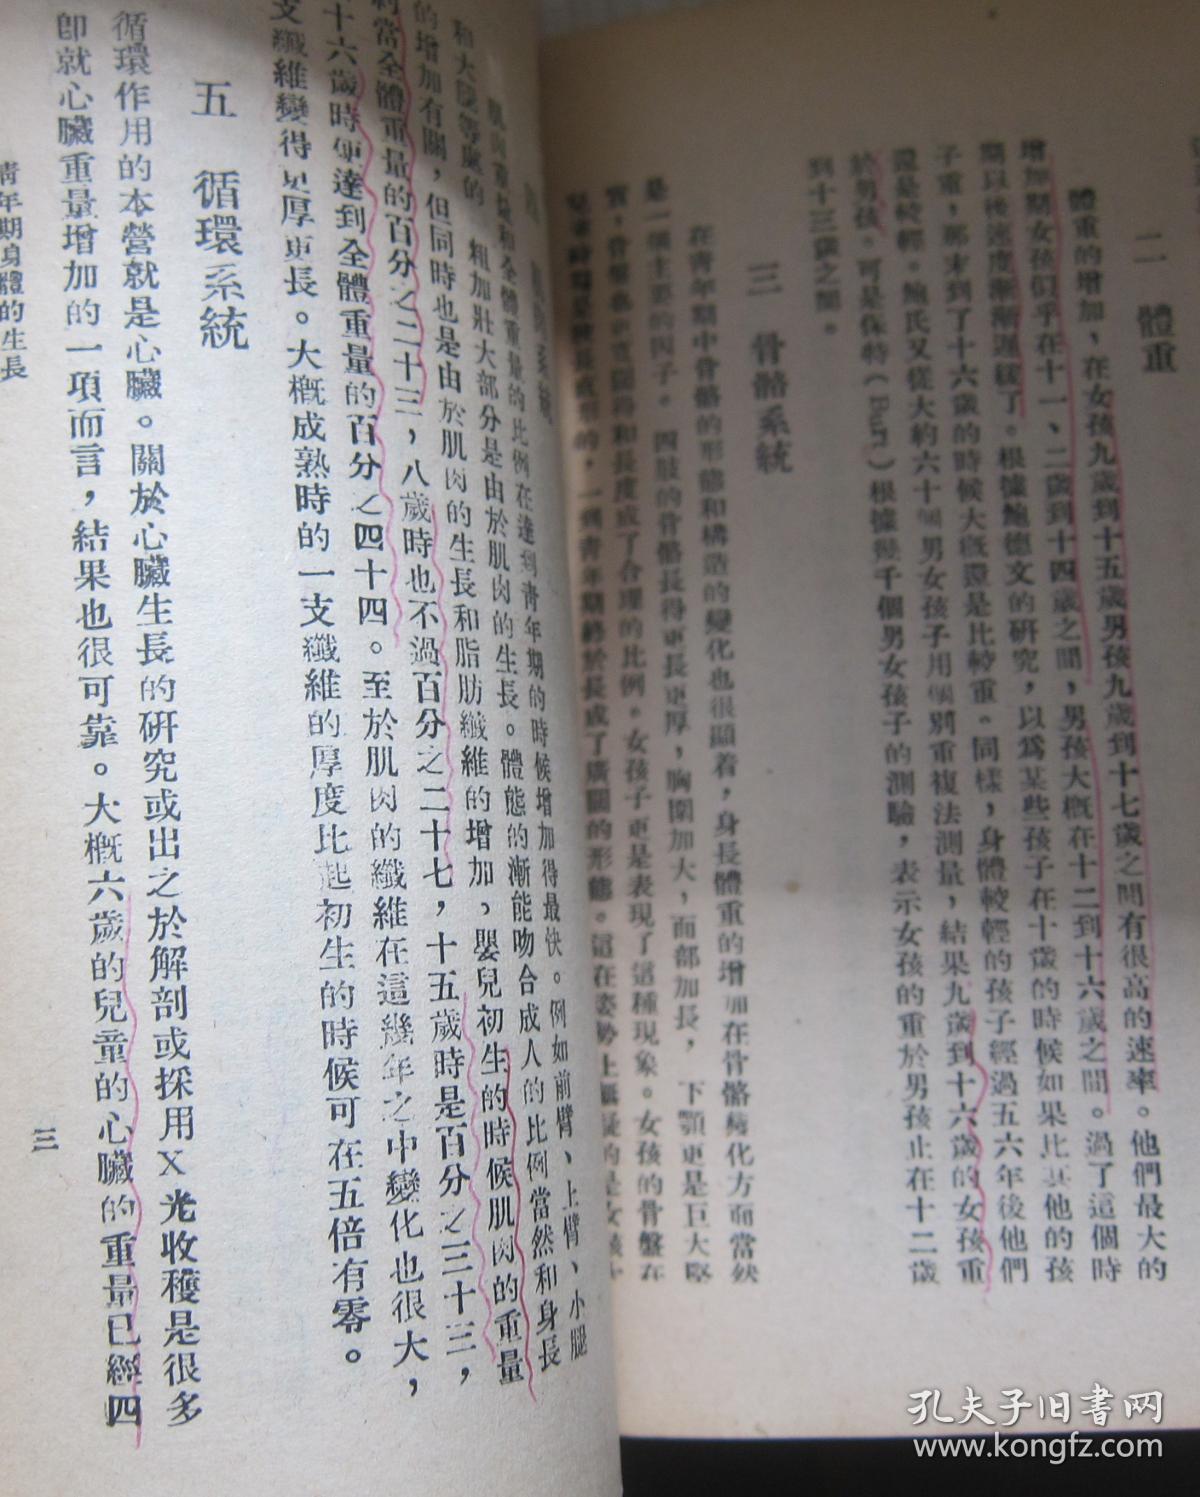 二 體重
體重的增加，在女孩九歲到十五歲男孩九歲到十七歲之間有很高的速率。他們最大的
增加期女孩似乎在十一、二歲到十四歲之間，男孩大概在十二到十六歲之間。過了這個時
期以後速度漸漸遲緩了。根據鮑德文的研究，以爲某些孩子在十歲的時候如果比其他的孩
子重，那末到了十六歲的時候大概還是比較重。同樣，身體較輕的孩子經過五六年後他們
還是較輕。鮑氏又從大約六十個男女孩子用個別重複法測量，結果九歲到十六歲的女孩重
於男孩。可是保特（）根據幾千個男女孩子的測驗，表示女孩的重於男孩止在十二歲
到十三歲之間。
三 骨骼系統
在青年期中骨骼的形態和構造的變化也很顯着，身長體重的增加在骨骼變化方面當然
是一個主要的因子。四肢的骨骼長得更長更厚，胸圍加大，面部加長，下顎更是巨大堅
實，骨盤也更寬闊得和長度成了合理的比例。女孩子更是表現了這種現象。女孩的骨盤在
的，一到青年期終於長成了廣闊的形態。這在姿勢上
系統
肌肉重量和全體重量的比例在達到青年期的時候增加得最快。例如前臂、上臂、小腿
和大腿等處的粗加壯大部分是由於肌肉的生長。體態的漸能吻合成人的比例當然和身長
的增加有關，但同時也是由於肌肉的生長和脂肪纖維的增加，嬰兒初生的時候肌肉的重量
當全體重量的百分之二十三，八歲時也不過百分之二十七，十五歲時是百分之三十三，
十六歲時便達到全體重量的百分之四十四。至於肌肉的纖維在這幾年之中變化也很大，
支纖維變得更厚更長。大概成熟時的一支纖維的厚度比起初生的時候可在五倍有零。
五 循環系統
循環作用的本營就是心臟。關於心臟生長的研究或出之於解剖或採用X光收穫是很多
卽就心臟重量增加的一項而言，結果也很可靠。大概六歲的兒童的心臟的重量已經四
青年期身體的生長
三
孔夫子旧书网
www.kongfz.com